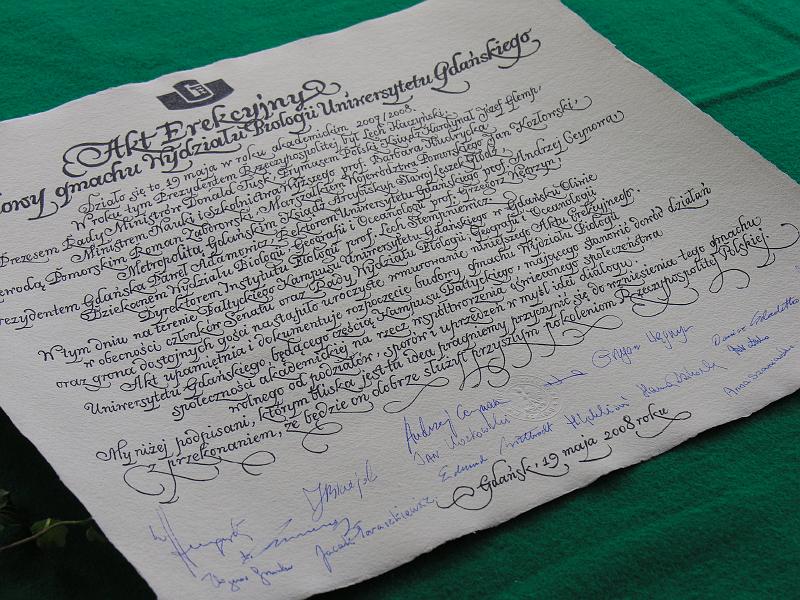 Akt Erekcyjny
owy gmachu Wydziału Biologii Uniwersytetu Gdańskiego
Działo się to 19 maja w roku akademickim 2007/2008.
W roku tym Prezydentem Rzeczypospolitej był Lech Kaczyński,
Prezesem Rady Ministrów Donald Tusk, Prymasem Polski Ksiądz Kardynał Józef Glemp,
Ministrem Nauki i Szkolnictwa Wyższego prof. Barbara Kudrycka,
ewodą Pomorskim Roman Zaborowski, Marszałkiem Województwa Pomorskiego Jan Kozłowski,
Metropolitą Gdańskim Ksiądz Arybiskup Sławoj Leszek Głódź,
rezydentem Gdańska Paweł Adamowicz, Rektorem Uniwersytetu Gdańskiego prof. Andrzej Ceynowa
Dziekanem Wydziału Biologii, Geografii i Oceanologii prof. Grzegorz Węgrzyn,
Dyrektorem Instytutu Biologii prof. Lech Stempniewicz
W tym dniu na terenie Bałtyckiego Kampusu Uniwersytetu Gdańskiego w Gdańsku Oliwie
w obecności członków Senatu oraz Rady Wydziału Biologii, Geografii i Oceanologii
oraz grona dostojnych gości nastąpiło uroczyste wmurowanie niniejszego Aktu Erekcyjnego.
Akt upamiętnia i dokumentuje rozpoczęcie budowy gmachu Wydziału Biologii
Uniwersytetu Gdańskiego będącego częścią Kampusu Bałtyckiego, mającego stanowić dowód działań
społeczności akademickiej na rzecz współtworzenia otwartego społeczeństwa
wolnego od podziałów, sporów i uprzedzeń w myśl idei dialogu.
My niżej podpisani, którym bliska jest ta idea pragniemy przyczynić się do wzniesienia tego gmachu
z przekonaniem, że będzie on dobrze służył przyszłym pokoleniom Rzeczypospolitej Polskiej
Andrzej Ceynowa
Jan Kozłowski
Jacek Taraszkiewicz
Gdańsk, 19 maja 2008 roku